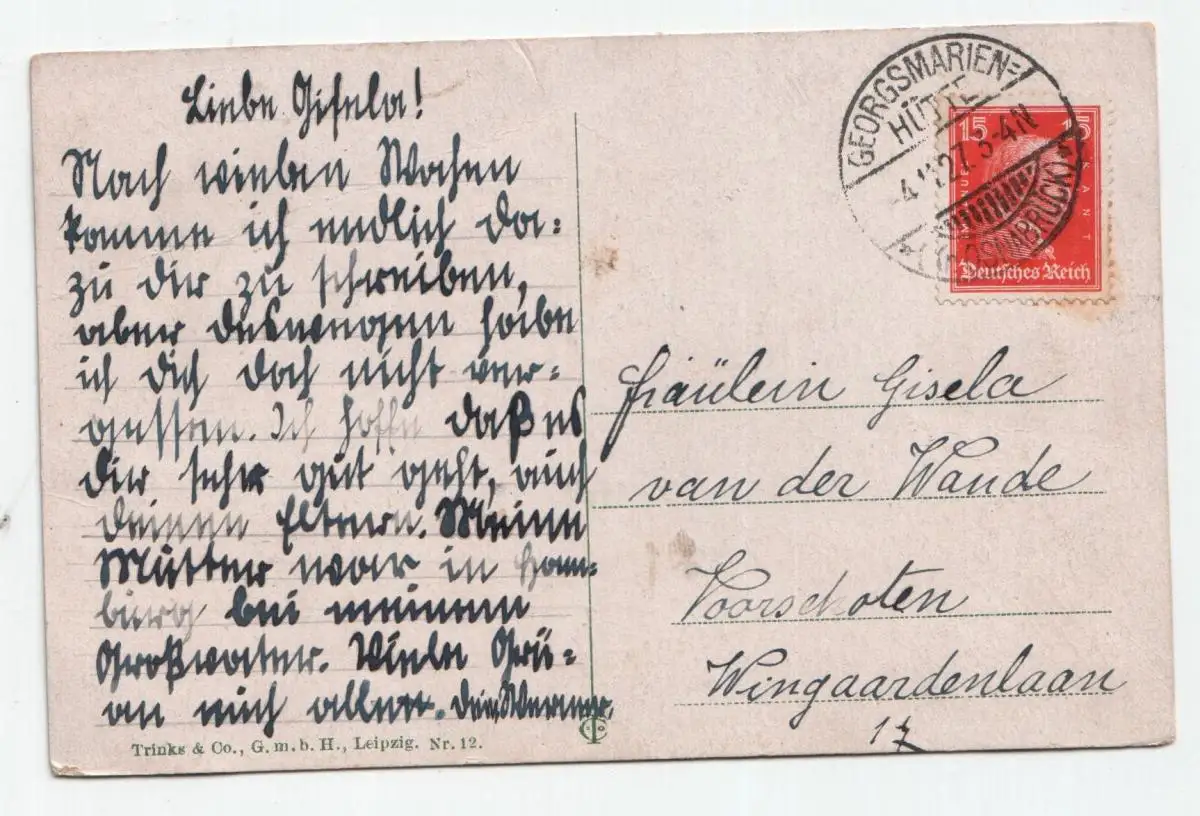 Liebe Gisela!
Nach vielen Wochen
komme ich endlich da=
zu dir zu schreiben,
aber deswegen habe
ich dich doch nicht ver=
gessen. Ich hoffe daß es
dir sehr gut geht, auch
deinen Eltern. Meine
Mutter war in Ham=
burg bei meinem
Großvater. Viele Grü=
an euch alle. Dein Werner.
Trinks & Co., G. m. b. H., Leipzig. Nr. 12.
GEORGSMARIEN=
HÜTTE
-4. 27. 3-4N
* (OSNABRÜCK) *
15 15
KANT
Deutsches Reich
Fräulein Gisela
van der Wande
Voorschoten
Wingaardenlaan
17